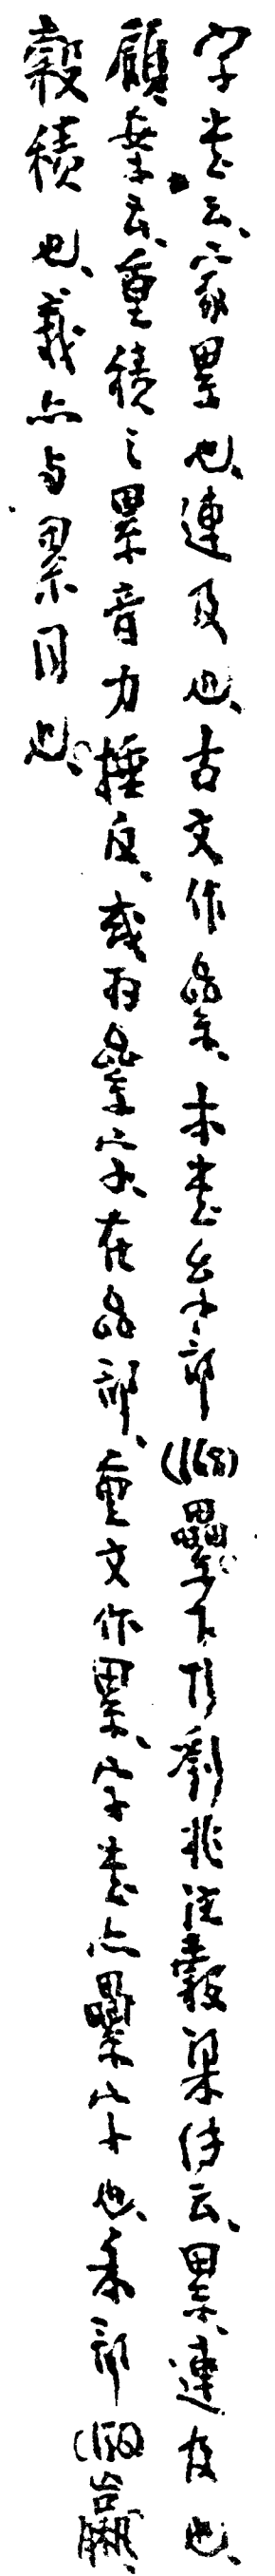 字书云、家累也、連及也、古文作絫、本书糸部(168)纍下引劉兆注穀梁傳云、累、連及也、
顧案云、重積之累音力捶反、或为絫字、在厽部、重文作累、字书亦纍字也、禾部(159)𥣬、
穀積也、義亦与累同也、